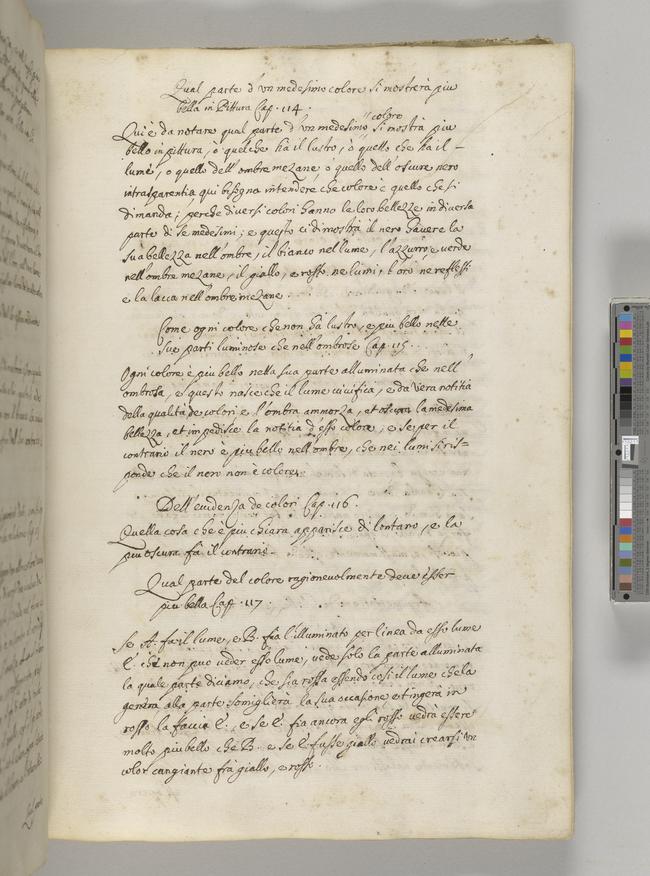 Qual parte d'un medesimo colore si mostrerà piu
bella in Pittura Cap. 114.
Qui è da notare qual parte d'un medesimo colore si mostra piu
bello in pittura, ò quel che hà il lustro, ò quello che hà il
lume, o quello dell'ombre mezane ò quello dell'oscure nero
in trasparentia qui bisogna intendere, che colore è quello che si
dimanda; perche diversi colori hanno le loro bellezze in diversa
parte di se medesimi; e questo ci dimostra il nero havere la
sua bellezza nell'ombre, il bianco nel lume, l'azzurro, e verde
nell'ombre mezane, il giallo, e rosso ne lumi, l'oro ne reflessi
e la lacca nell'ombre mezane.
Come ogni colore che non hà lustro, e piu bello nelle
sue parti luminose che nell'ombrose Cap. 115.
Ogni colore è piu bello nella sua parte alluminata che nell'
ombrosa, e questo nasce che il lume vivifica, e da vera notitia
della qualità de colori e l'ombra ammorza, et oscura la medesima
bellezza, et impedisce la notitia d'esso colore, e se per il
contrario il nero e piu bello nell'ombre, che nei lumi si ris=
ponde che il nero non è colore.
Dell'evidenza de colori Cap. 116.
Quella cosa che è piu chiara apparisce di lontano, e la
piu oscura fà il contrario.
Qual parte del colore ragionevolmente deve esser
piu bella Cap. 117.
Se A. fa il lume, e B. fia l'illuminato per linea da esso lume
E. che non puo veder esso lume, vede solo la parte alluminata
la quale parte diciamo, che sia rossa essendo cosi il lume che la
genera, alla parte somiglierà la sua occasione e tingerà in
rosso la faccia E. e se E. fia ancora egli rosso vedrà essere
molto piu bello che B. e se E. fusse giallo vedrai crearsi un
color cangiante frà giallo, e rosso.